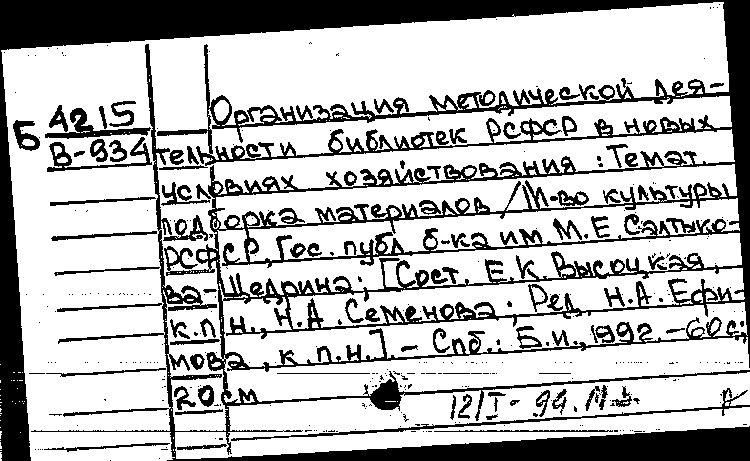 Б 4215
В-934
Организация методической дея-
тельности библиотек РСФСР в новых
условиях хозяйствования : Темат.
подборка материалов / М-во культуры
РСФСР, Гос. публ. б-ка им. М.Е. Салтыко-
ва-Щедрина; [Сост. Е.К. Высоцкая,
к.п.н., Н.А. Семенова; Ред. Н.А. Ефи-
мова, к.п.н.]. - Спб.: Б.и., 1992. - 60 с;
20 см
12/I - 94.